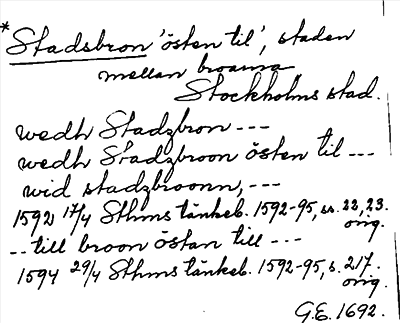 *Stadsbron 'östen til', staden
mellan broarna,
Stockholms stad.
wedh Stadzbron ---
wedh Stadzbroon östen til ---
wid stadzbroonn, ---
1592 17/4 Sthms tänkeb. 1592-95, ss. 22, 23.
orig.
-- till broon östan till ---
1594 29/4 Sthms tänkeb. 1592-95, s. 217.
orig.
G.E. 1692.